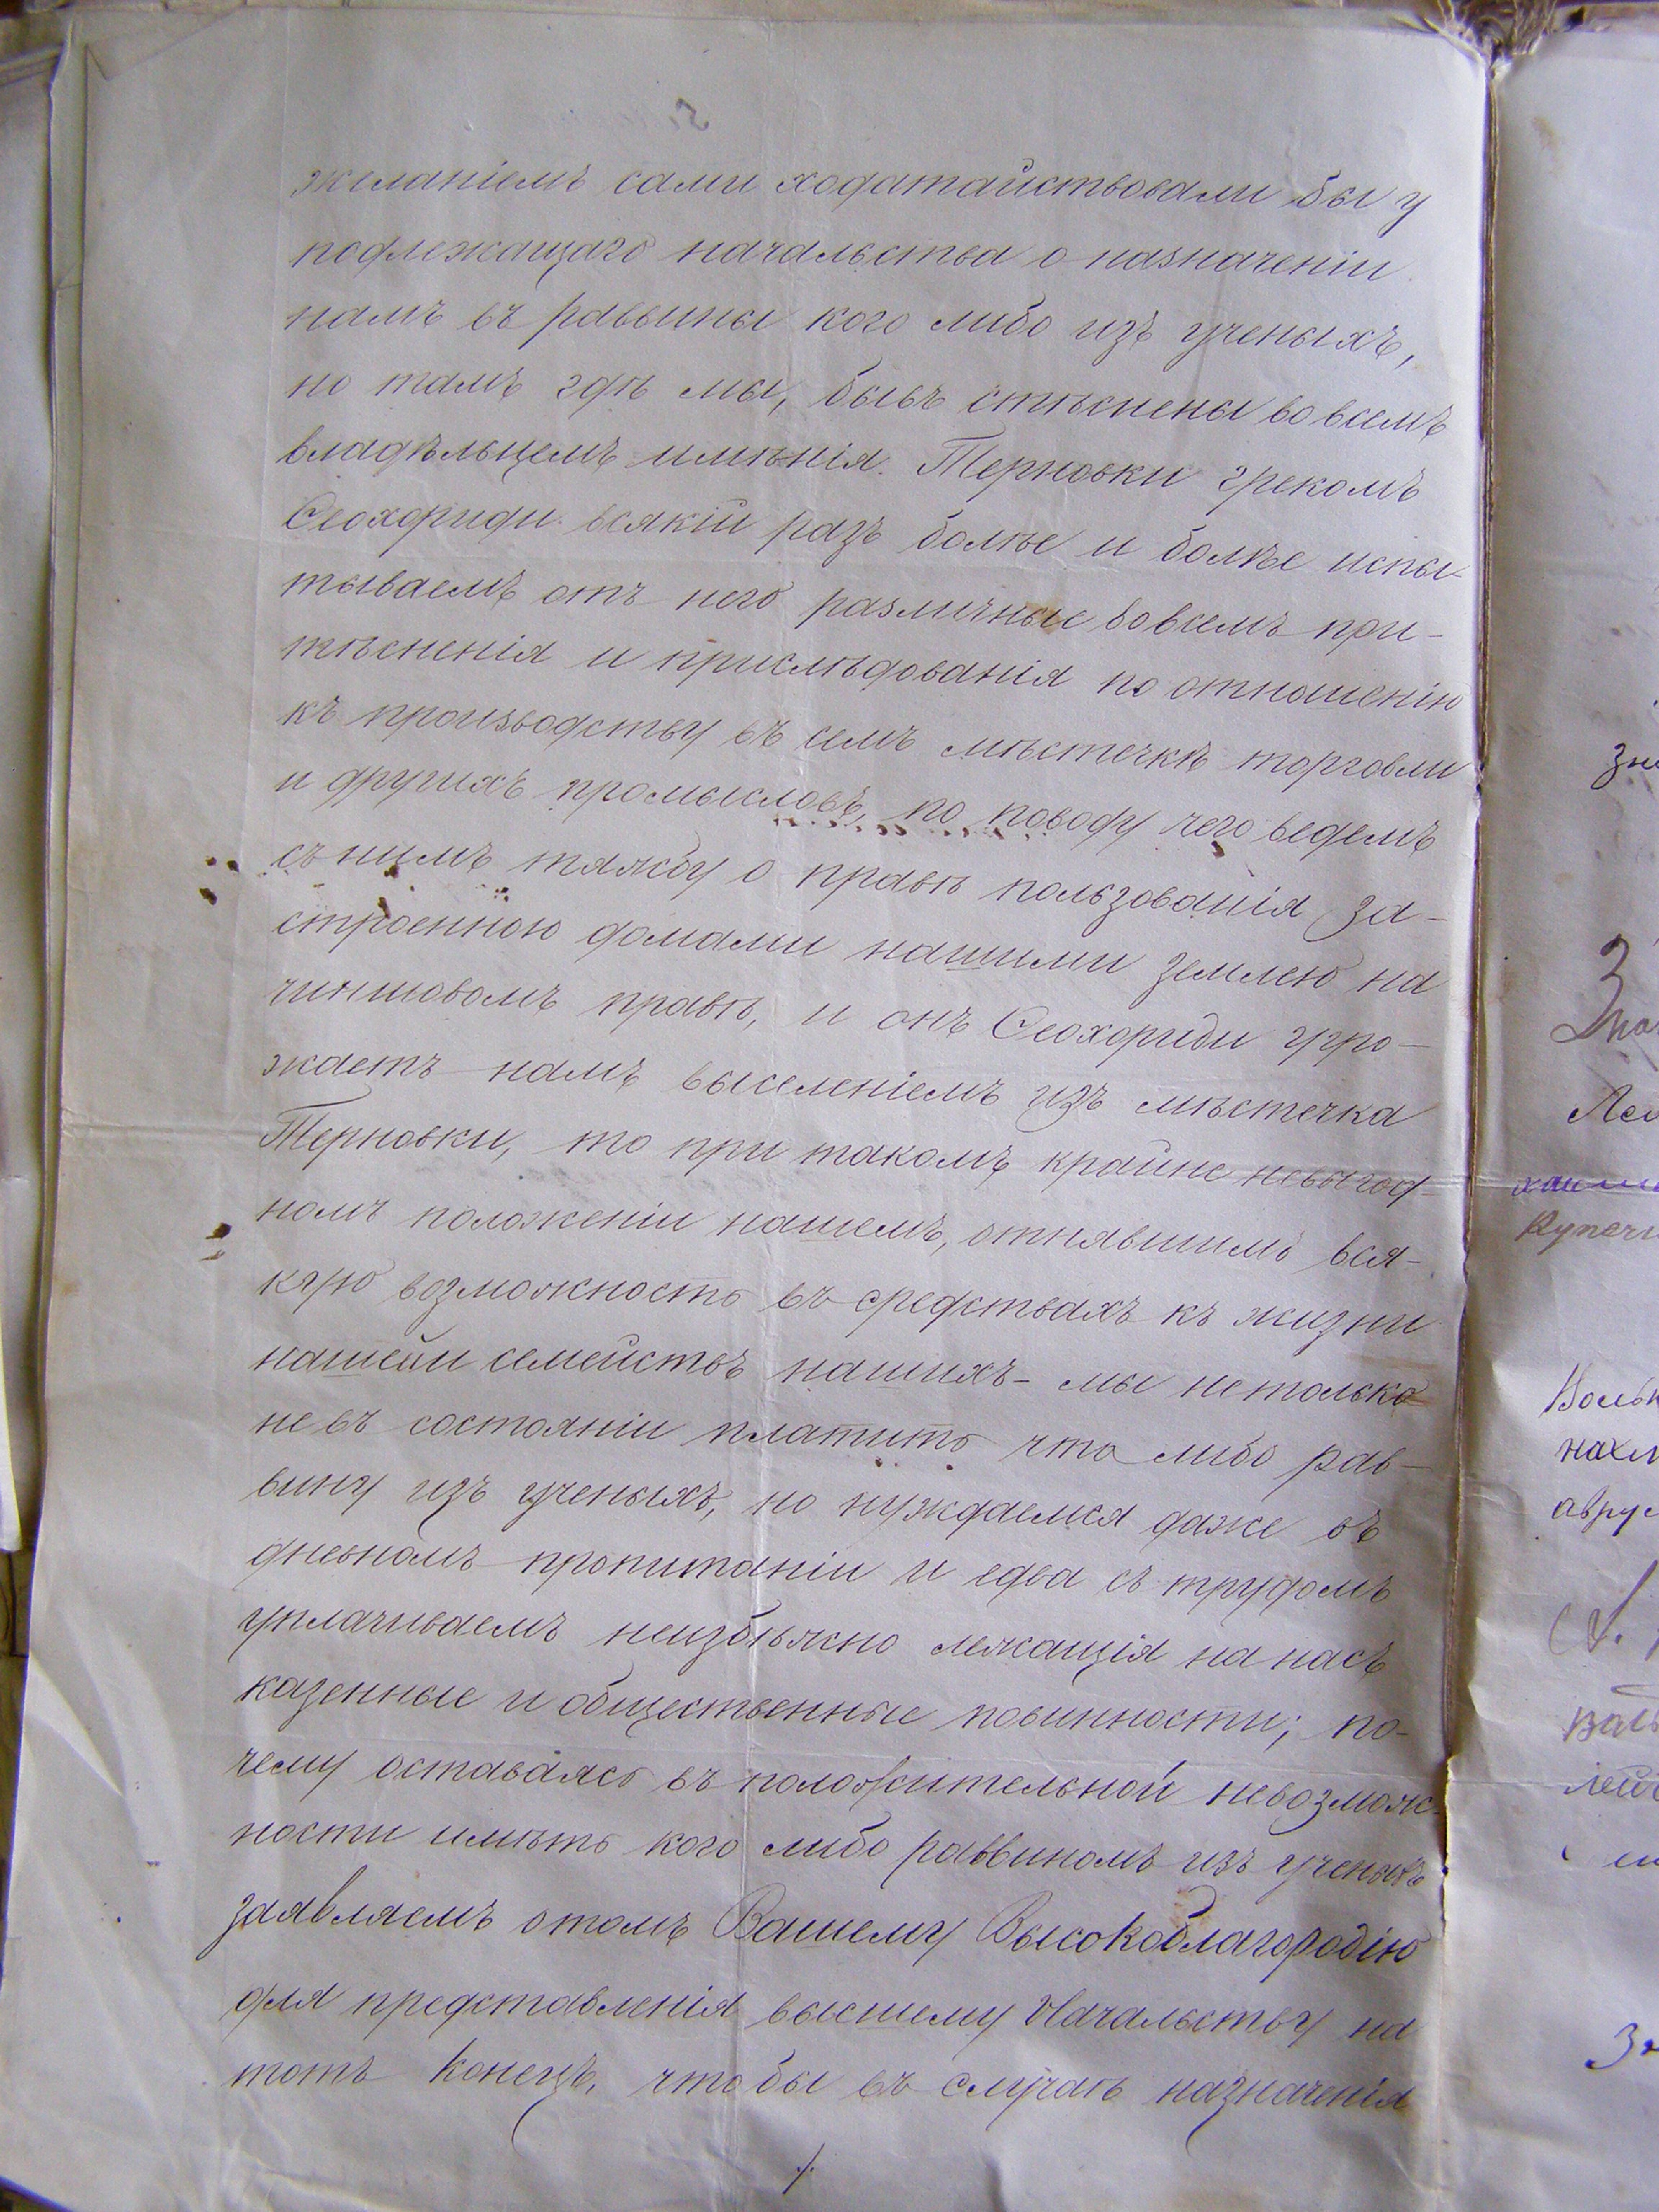 желаніемъ сами ходатайствовали бы у
подлежащаго начальства о назначеніи
намъ въ раввины кого либо изъ ученыхъ,
но тамъ гдѣ мы, бывъ стѣснены во всемъ
владѣльцемъ имѣнія Терновки грекомъ
Феохориди всякій разъ болѣе и болѣе испы-
тываемъ отъ него различные во всемъ при-
тѣсненія и прислѣдованія по отношенію
къ производству въ семъ мѣстечкѣ торговли
и другихъ промысловъ, по поводу чего ведемъ
съ нимъ тяжбу о правѣ пользованія за-
строенною домами нашими землею на
чиншовомъ правѣ, и онъ Феохориди угро-
жаетъ намъ выселеніемъ изъ мѣстечка
Терновки, то при такомъ крайне невыгод-
номъ положеніи нашемъ, отнявшимъ вся-
кую возможность въ средствахъ къ жизни
нашей и семействъ нашихъ - мы не только
не въ состояніи платить что либо рав-
вину изъ ученыхъ, но нуждаемся даже въ
дневномъ пропитаніи и едва съ трудомъ
уплачиваемъ неизбѣжно лежащія на насъ
казенные и общественные повинности; по-
чему оставаясь въ положительной невозмож-
ности имѣть кого либо раввиномъ изъ ученыхъ
заявляемъ о томъ Вашему Высокоблагородію
для представленія высшему Начальству на
тотъ конецъ, что бы въ случаѣ назначенія
./.